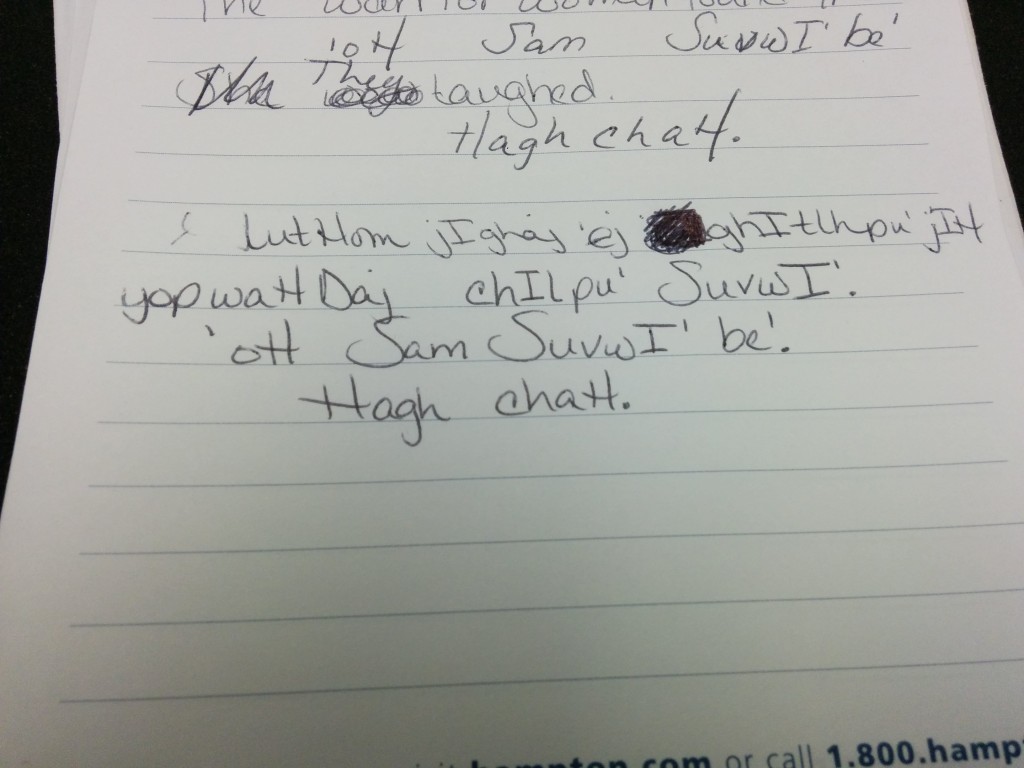 The woman
'oH Sam SuvwI' be'
They laughed.
Hagh chaH.
lutHom jIghaj 'ej ghItlhpu' jIH
yopwaHDaj chIlpu' SuvwI'.
'oH Sam SuvwI' be'.
Hagh chaH.
hampton.com or call 1.800.hamp